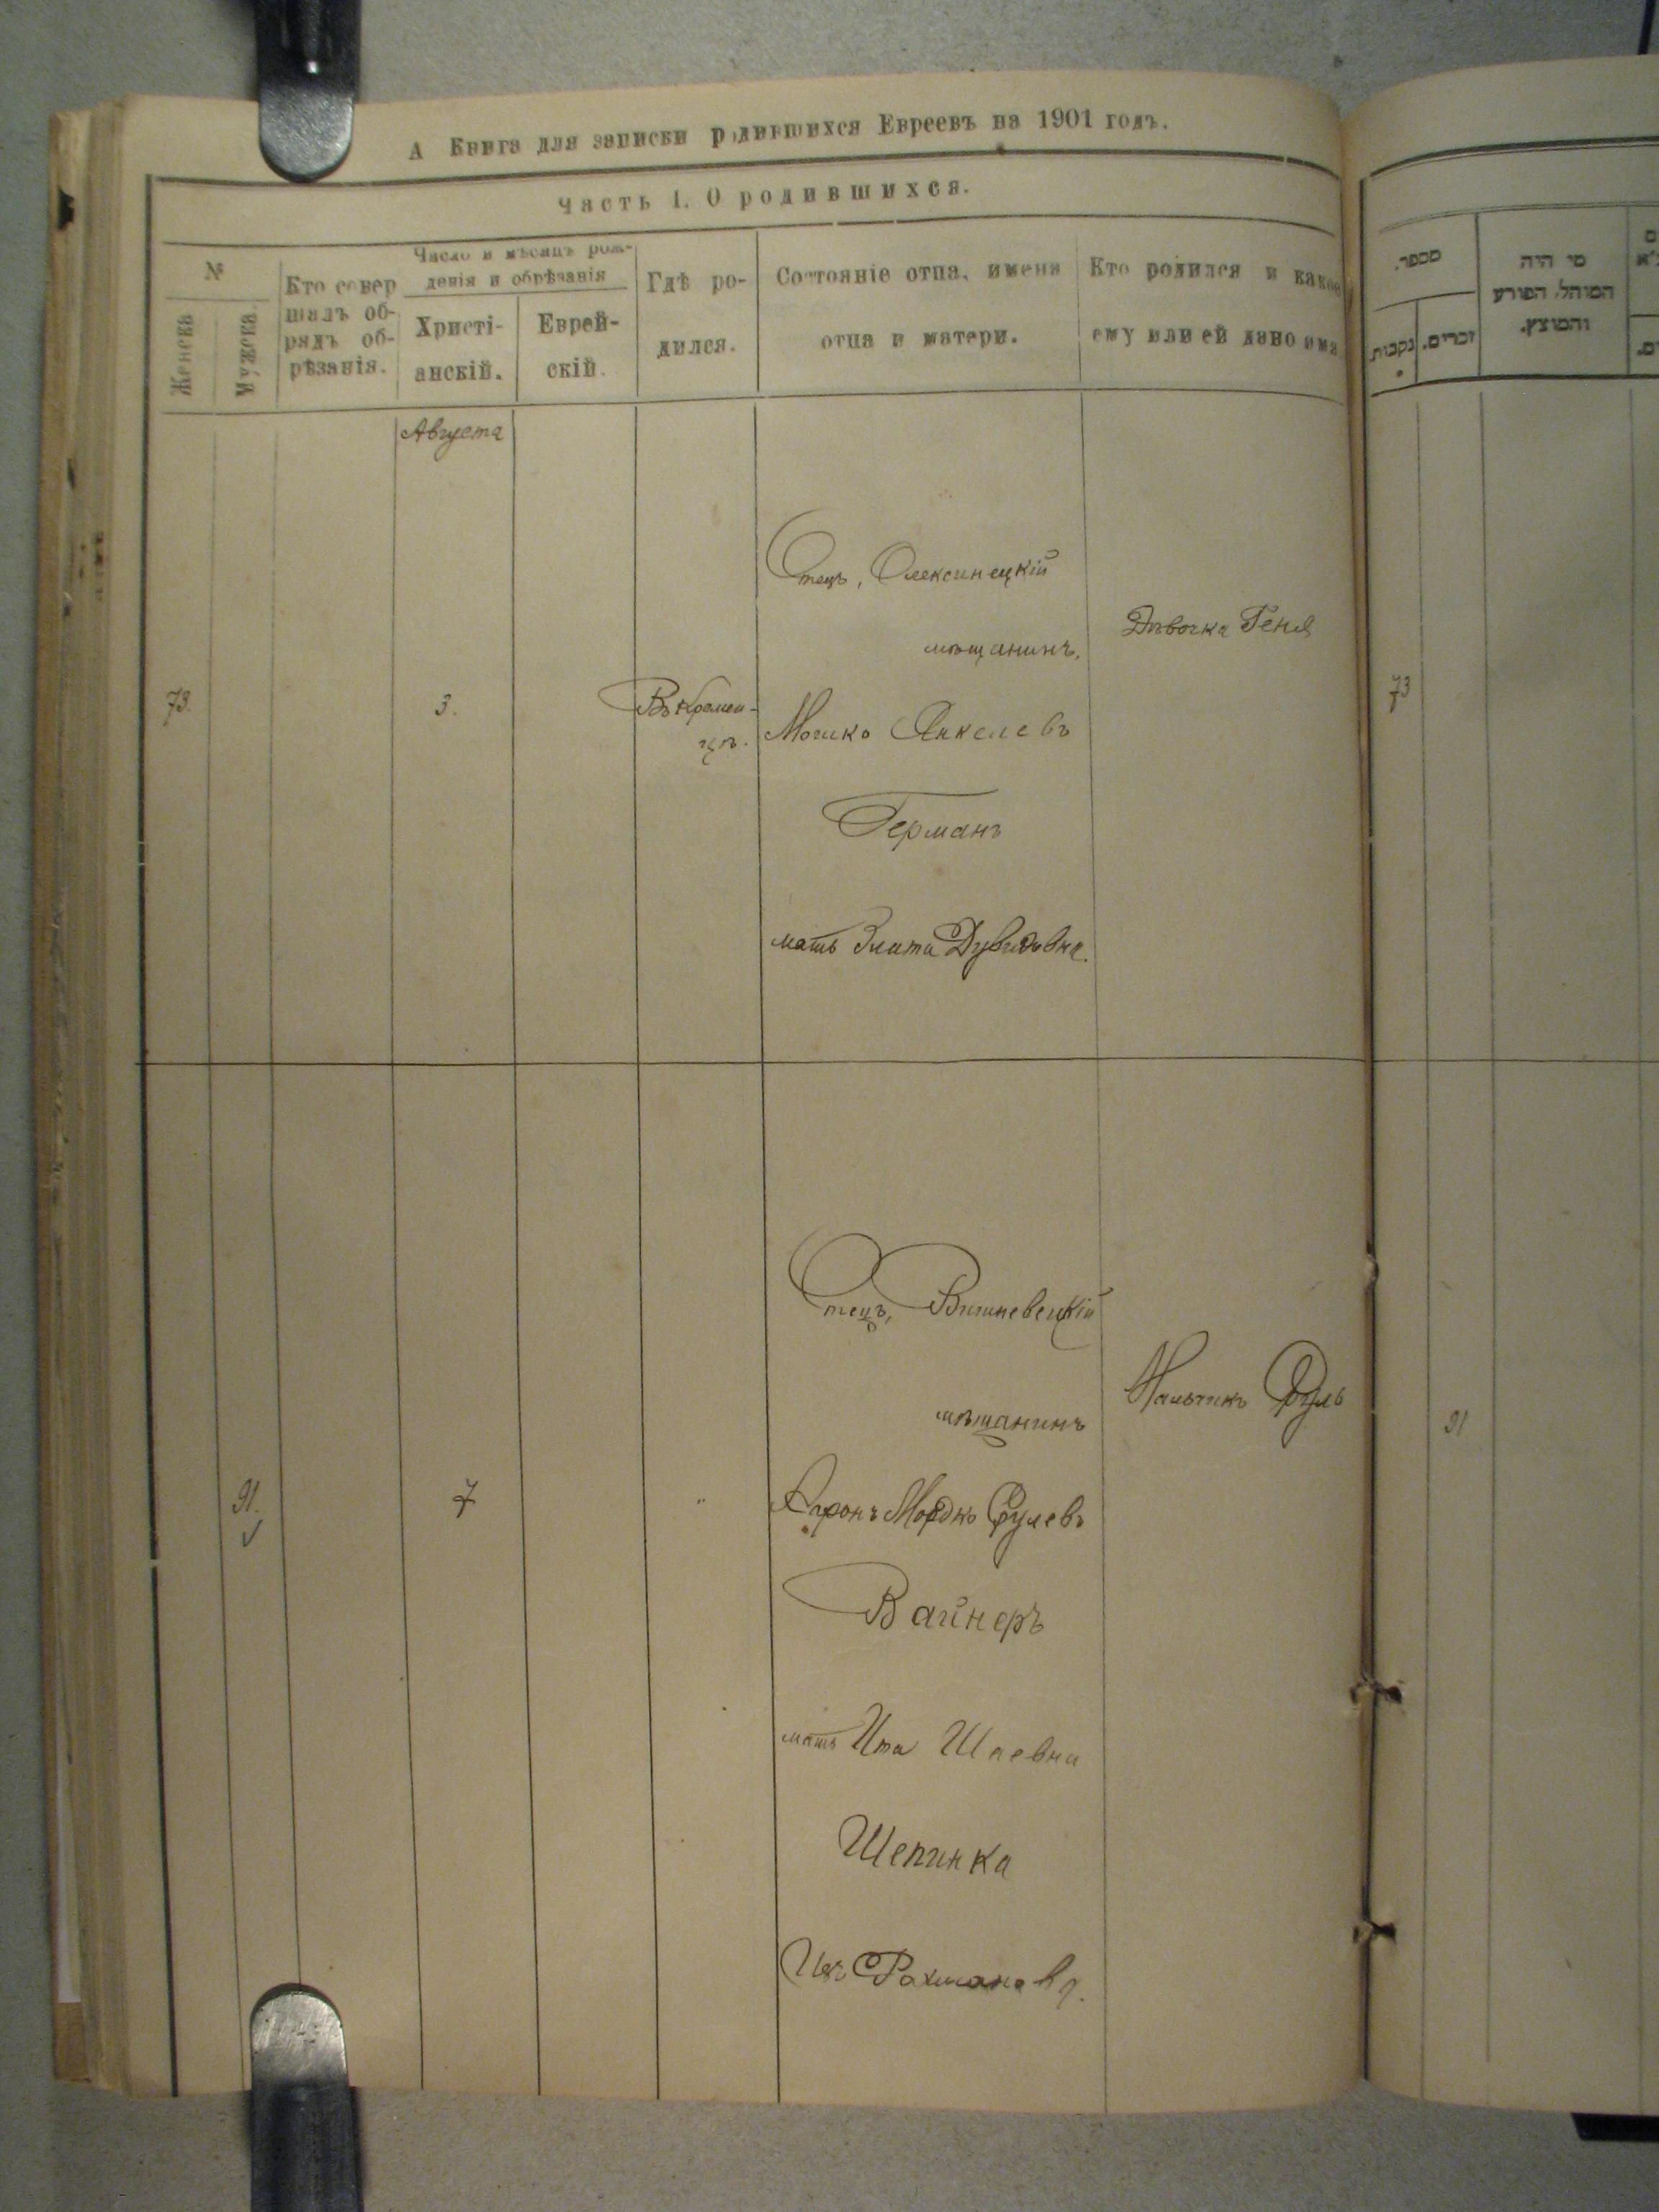 А Книга для записки родившихся Евреевъ на 1901 годъ.
Часть 1. О родившихся.
№
Женска
Мужска
Кто совер
шалъ об-
рядъ об-
рѣзанія.
Число и мѣсяцъ рож-
денія и обрѣзанія
Христі-
анскій.
Еврей-
скій.
Гдѣ ро-
дился.
Состояніе отца, имена
отца и матери.
Кто родился и какое
ему или ей дано имя
Августа
73.
3.
Въ Кремен-
цѣ.
Отецъ, Олексинецкій
мѣщанинъ,
Мошко Янкелевъ
Германъ
мать Злата Дувидовна.
Дѣвочка Геня
91.
7
"
Отецъ, Вишневецкій
мѣщанинъ
Аронъ Мордко Срулевъ
Вайнеръ
мать Ита Шаевна
Шепинка
Изъ Рахманова.
Мальчикъ Сруль
מספר.
נקבות
זכרים.
מי היה
המוהל, הפורע
והמוצץ.
73
91